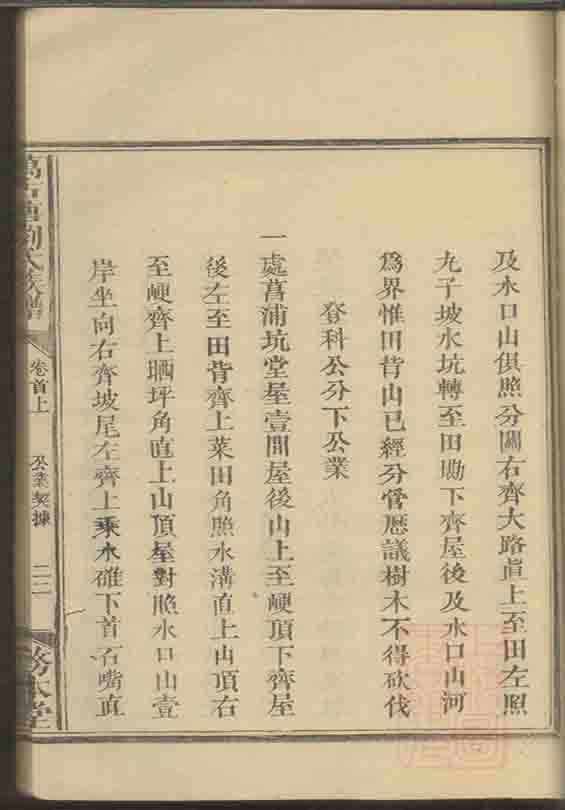 及水口山俱照分關右齊大路眞上至田左照
九子坡水坑轉至田勘下齊屋後及水口山河
爲界惟田背山已經分管歷議樹木不得砍伐
登科公分下公業
一處菖浦坑堂屋壹間屋後山上至峺頂下齊屋
後左至田背齊上菜田角照水溝直上山頂右
至峺齊上晒坪角直上山頂屋對照水口山壹
岸坐向右齊坡尾左齊上乘水碓下首石嘴直
劉氏族譜
卷首上
公業契據
二三
務本堂